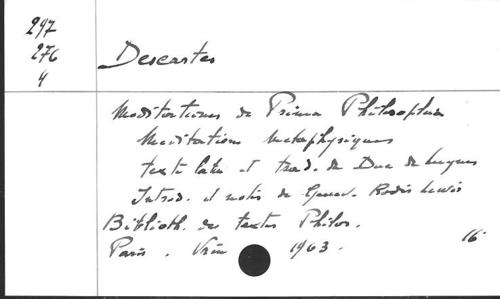 247
276
4
Descartes
Meditationes de Prima Philosophia
Meditations metaphysiques
texte latin et trad. de Duc de Luynes
Introd. et notes de Genev. Rodis Lewis
Biblioth. des textes Philos.
Paris. Vrin 1963. 16